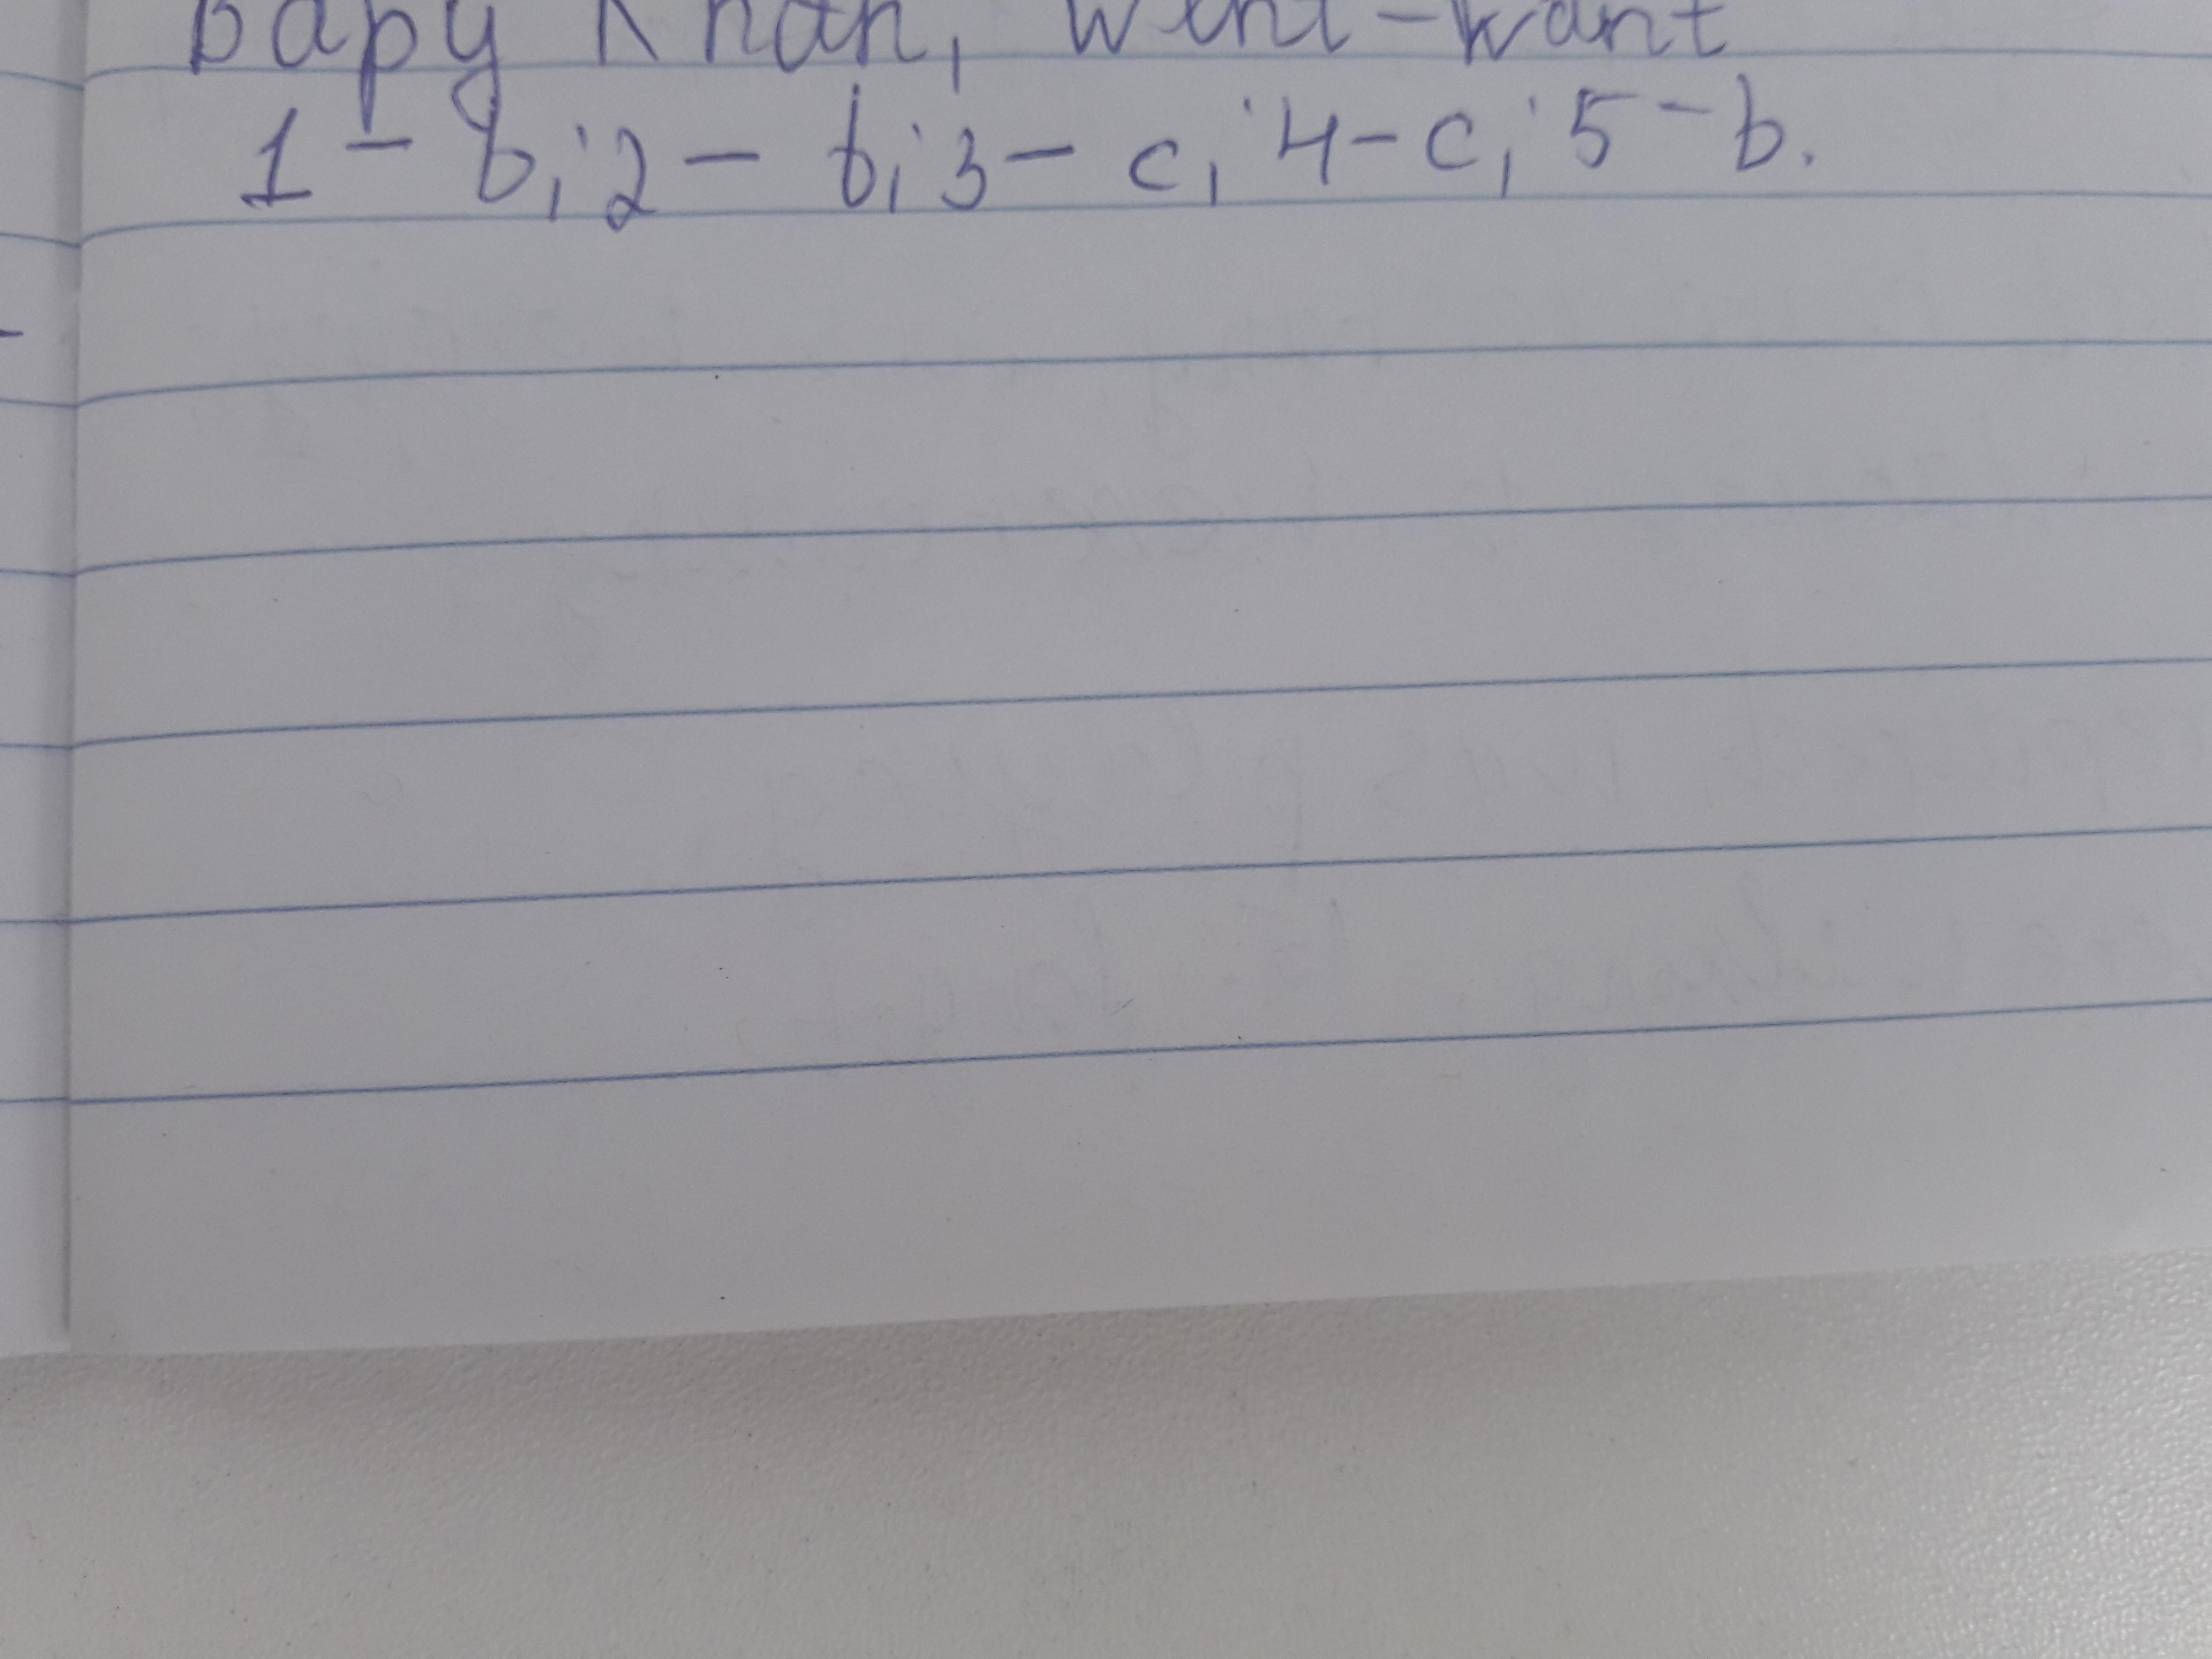 Bapy Khan, went-want
1 - b; 2 - b; 3 - c; 4 - c; 5 - b.